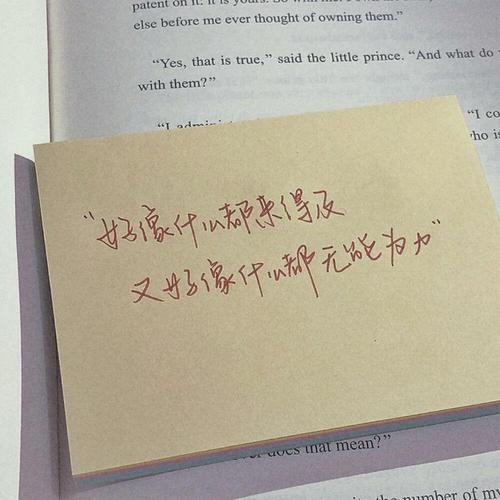 patent on it. It is yours. So with me:
else before me ever thought of owning them.”
“Yes, that is true,” said the little prince. “And what do
with them?”
“I
“I co
who is
“好像什么都来得及
又好像什么都无能为力”
does that mean?”
the number of my